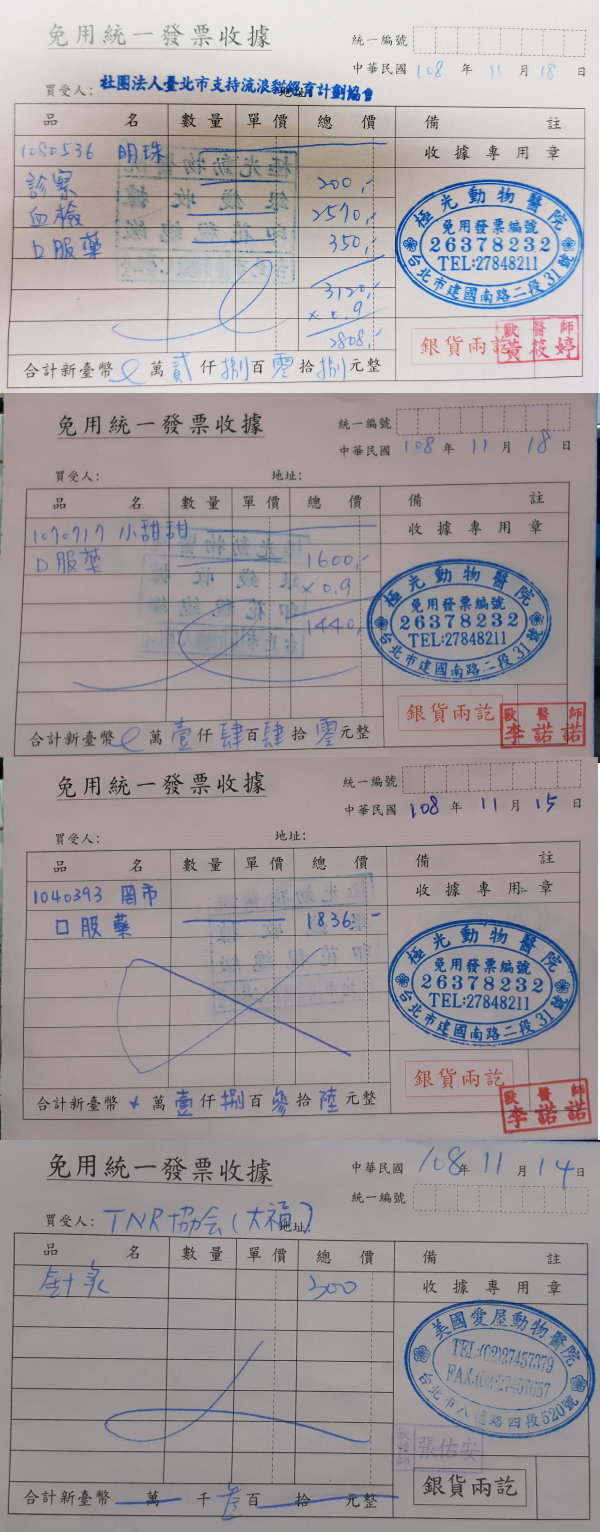 免用統一發票收據
統一編號
中華民國 108 年 11 月 18 日
買受人: 社團法人臺北市支持流浪貓絕育計劃協會
地址:
品名 數量 單價 總價 備註
1080536 明珠 收據專用章
診察 200,-
血檢 2570,-
口服藥 350,-
3120,-
x 0.9
2808,-
極光動物醫院
免用發票編號
26378232
TEL:27848211
台北市建國南路二段31號
銀貨兩訖
獸醫師
黃筱婷
合計新臺幣 萬貳仟捌百零拾捌元整
免用統一發票收據
統一編號
中華民國 108 年 11 月 18 日
買受人:
地址:
品名 數量 單價 總價 備註
1070717 小甜甜 收據專用章
口服藥 1600,-
x 0.9
1440,-
極光動物醫院
免用發票編號
26378232
TEL:27848211
台北市建國南路二段31號
銀貨兩訖
獸醫師
李諾諾
合計新臺幣 萬壹仟肆百肆拾零元整
免用統一發票收據
統一編號
中華民國 108 年 11 月 15 日
買受人:
地址:
品名 數量 單價 總價 備註
1040393 岡市 收據專用章
口服藥 1836 -
極光動物醫院
免用發票編號
26378232
TEL:27848211
台北市建國南路二段31號
銀貨兩訖
獸醫師
李諾諾
合計新臺幣 萬壹仟捌百參拾陸元整
免用統一發票收據
中華民國 108 年 11 月 14 日
統一編號
買受人: TNR協会(大福)
地址:
品名 數量 單價 總價 備註
300 收據專用章
美國愛屋動物醫院
TEL:(02)27457379
FAX:(02)27457657
台北市八德路四段520號
獸醫師
張佑安
銀貨兩訖
合計新臺幣 萬 千 叁百 拾 元整